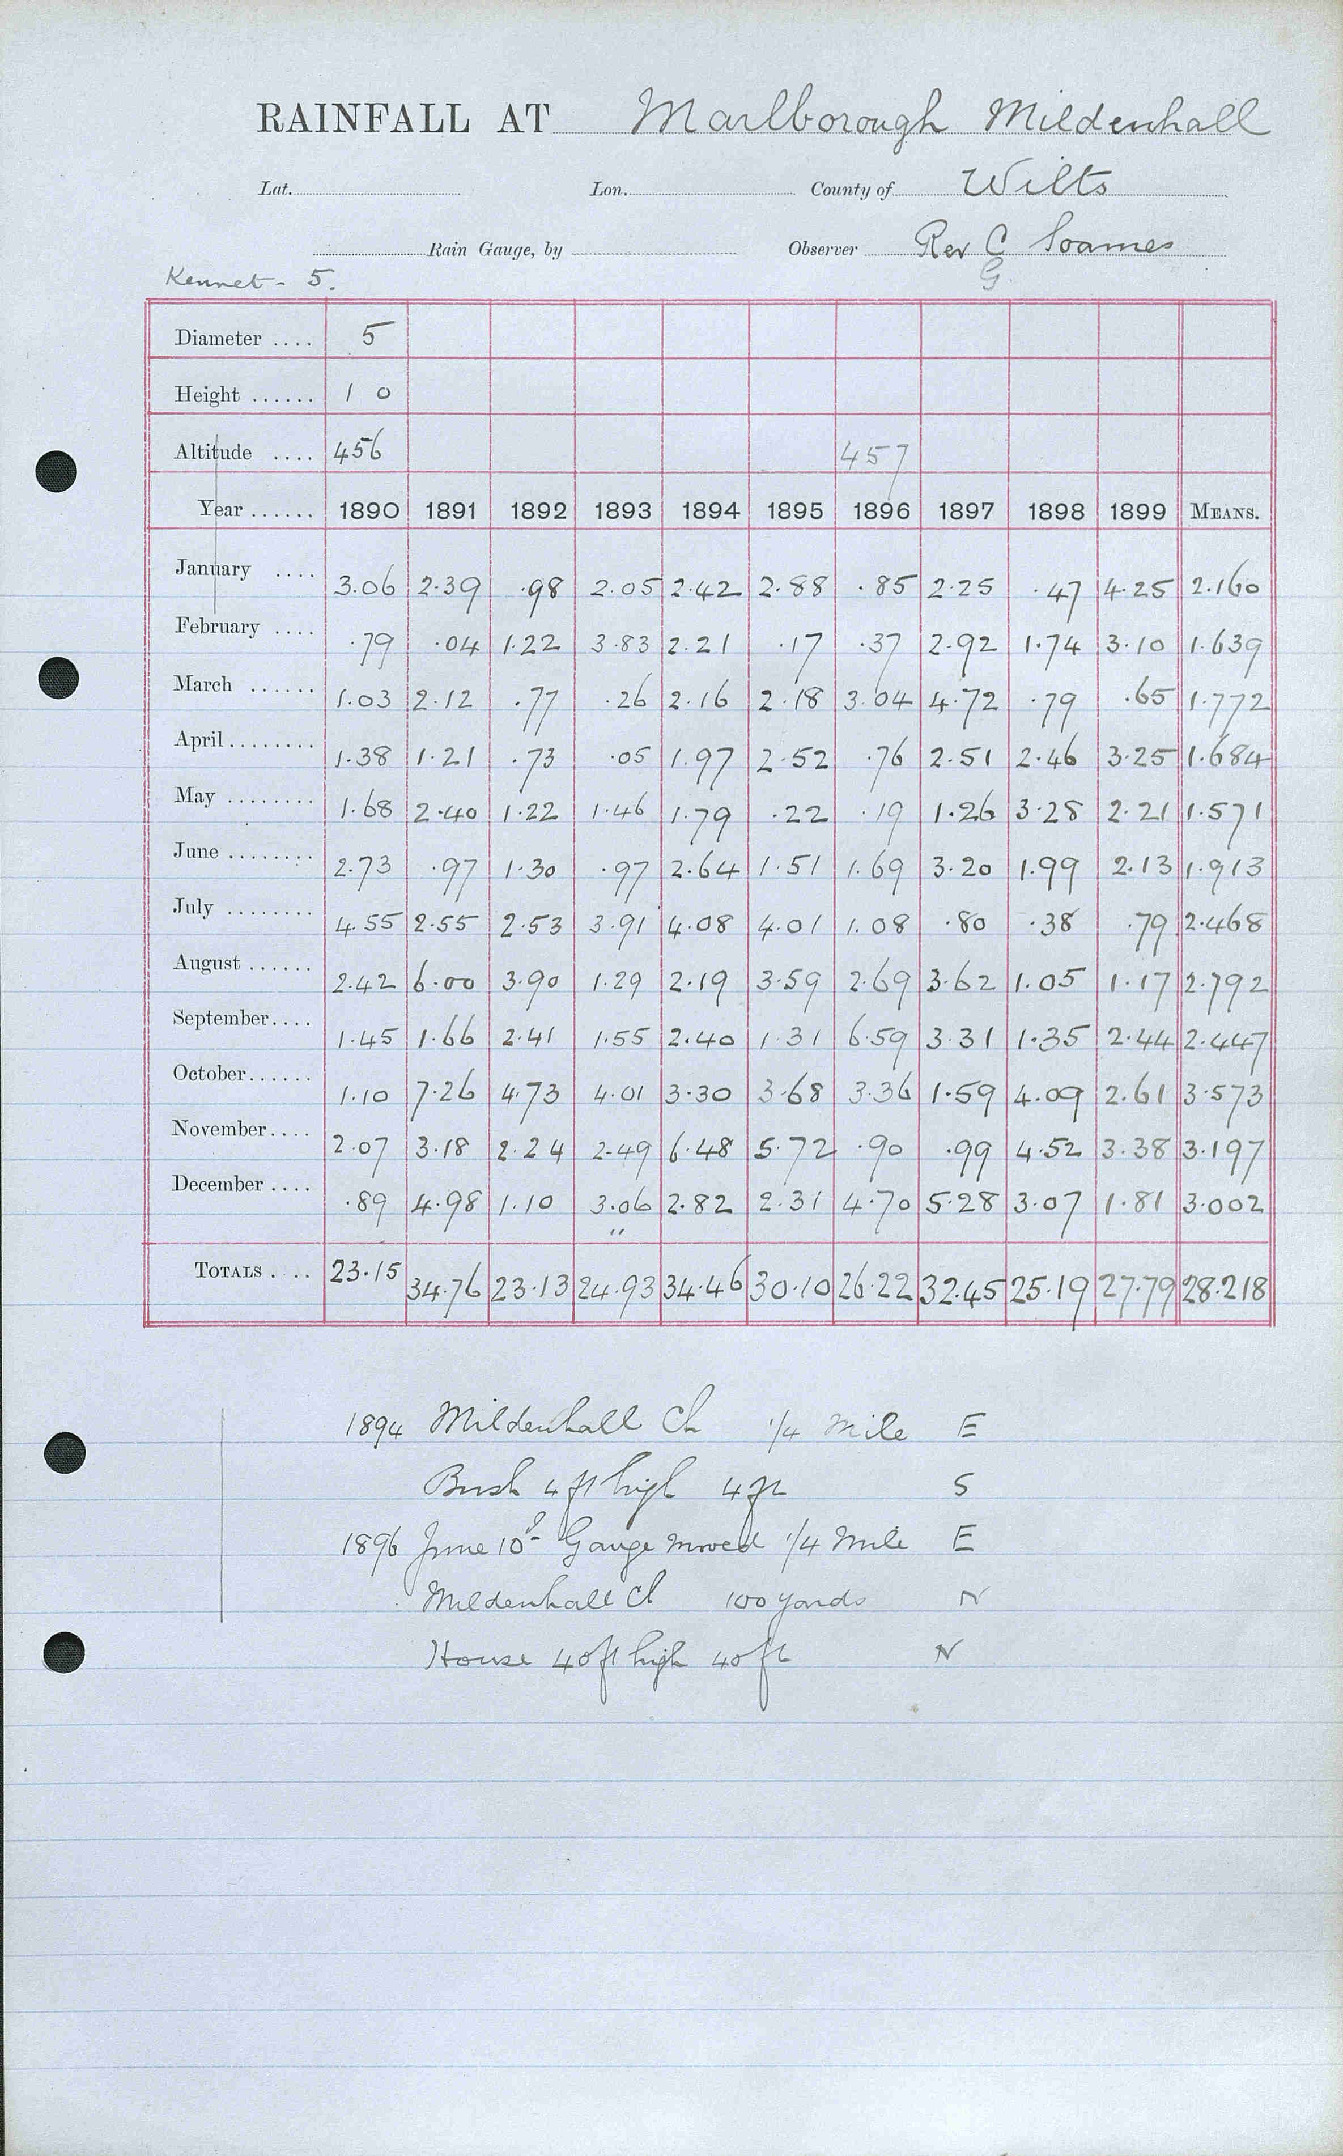 RAINFALL AT Marlborough Mildenhall
Lat. Lon. County of Wilts
Rain Gauge, by Observer Rev C Soames
G
Kennet - 5.
Diameter .... 5
Height ...... 1 0
Altitude .... 456 457
Year ...... 1890 1891 1892 1893 1894 1895 1896 1897 1898 1899 MEANS.
January .... 3.06 2.39 .98 2.05 2.42 2.88 .85 2.25 .47 4.25 2.160
February .... .79 .04 1.22 3.83 2.21 .17 .37 2.92 1.74 3.10 1.639
March ...... 1.03 2.12 .77 .26 2.16 2.18 3.04 4.72 .79 .65 1.772
April ........ 1.38 1.21 .73 .05 1.97 2.52 .76 2.51 2.46 3.25 1.684
May ........ 1.68 2.40 1.22 1.46 1.79 .22 .19 1.26 3.28 2.21 1.571
June ........ 2.73 .97 1.30 .97 2.64 1.51 1.69 3.20 1.99 2.13 1.913
July ........ 4.55 2.55 2.53 3.91 4.08 4.01 1.08 .80 .38 .79 2.468
August ...... 2.42 6.00 3.90 1.29 2.19 3.59 2.69 3.62 1.05 1.17 2.792
September.... 1.45 1.66 2.41 1.55 2.40 1.31 6.59 3.31 1.35 2.44 2.447
October...... 1.10 7.26 4.73 4.01 3.30 3.68 3.36 1.59 4.09 2.61 3.573
November.... 2.07 3.18 2.24 2.49 6.48 5.72 .90 .99 4.52 3.38 3.197
December .... .89 4.98 1.10 3.06 2.82 2.31 4.70 5.28 3.07 1.81 3.002
"
TOTALS .... 23.15 34.76 23.13 24.93 34.46 30.10 26.22 32.45 25.19 27.79 28.218
1894 Mildenhall Ch 1/4 Mile E
Bush 4 ft high 4 ft S
1896 June 10 Gauge moved 1/4 Mile E
Mildenhall Ch 100 yards N
House 40 ft high 40 ft N